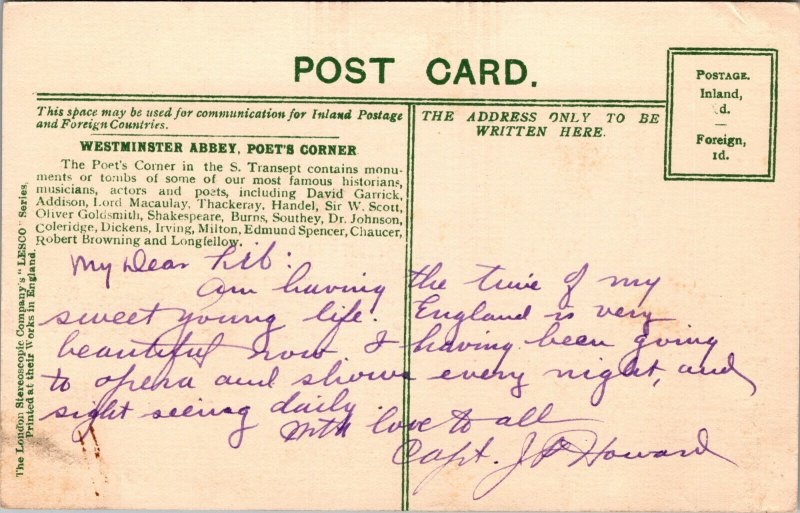 POST CARD.
POSTAGE.
Inland,
d.
—
Foreign,
1d.
This space may be used for communication for Inland Postage
and Foreign Countries.
THE ADDRESS ONLY TO BE
WRITTEN HERE.
WESTMINSTER ABBEY, POET'S CORNER
The Poet's Corner in the S. Transept contains monu-
ments or tombs of some of our most famous historians,
musicians, actors and poets, including David Garrick,
Addison, Lord Macaulay, Thackeray, Handel, Sir W. Scott,
Oliver Goldsmith, Shakespeare, Burns, Southey, Dr. Johnson,
Coleridge, Dickens, Irving, Milton, Edmund Spencer, Chaucer,
Robert Browning and Longfellow.
The London Stereoscopic Company's "LESCO" Series.
Printed at their Works in England.
My Dear :
Am having the time of my
sweet young life. England is very
beautiful now & having been going
to opera and shows every night, and
sight seeing daily.
With love to all
Capt. J P Howard